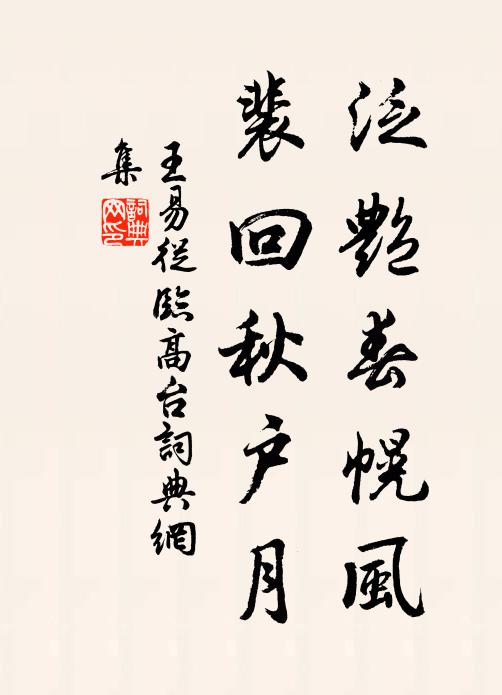 泛艷春幌風
裴回秋户月
王易從臨高台詞典網
集
詞典网印